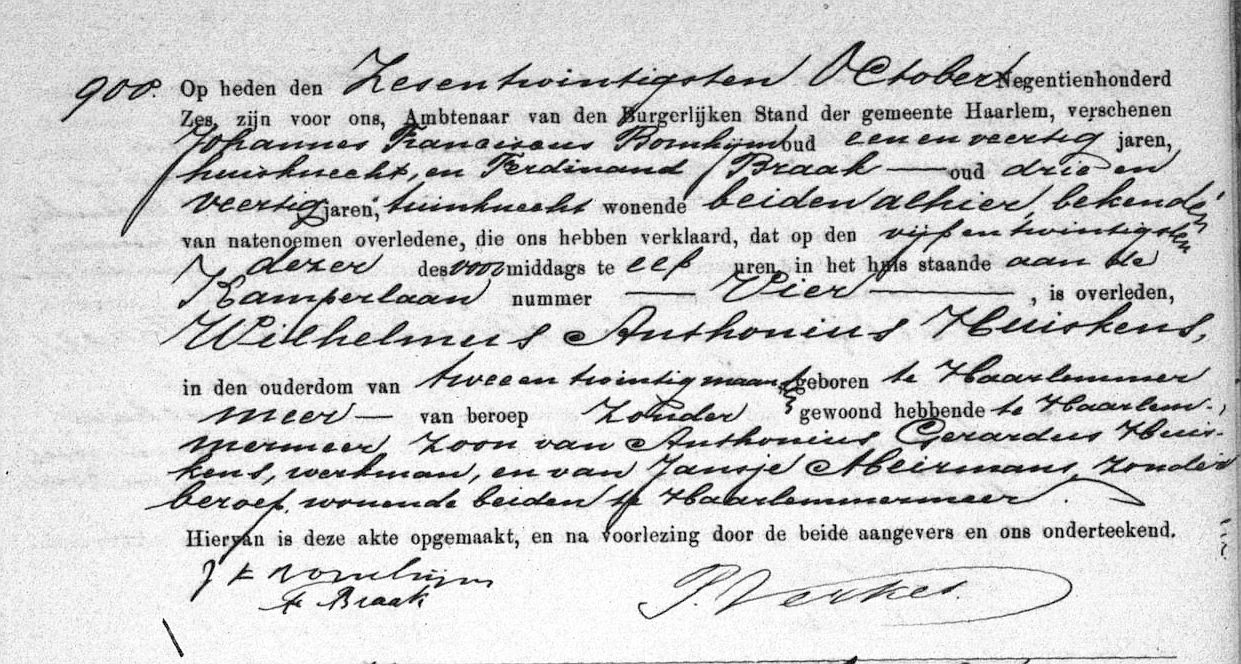 900. Op heden den Zesentwintigsten October Negentienhonderd
Zes, zijn voor ons, Ambtenaar van den Burgerlijken Stand der gemeente Haarlem, verschenen
Johannes Franciscus Bomhijm oud eenenveertig jaren,
huisknecht, en Ferdinand Braak — oud drieen
veertig jaren, tuinknecht wonende beiden alhier, bekenden
van natenoemen overledene, die ons hebben verklaard, dat op den vijfentwintigsten
dezer des voormiddags te elf uren, in het huis staande aan de
Kamperlaan nummer — Vier —, is overleden,
Wilhelmus Anthonius Huiskens,
in den ouderdom van tweeentwintig maanden geboren te Haarlemmer
meer — van beroep zonder gewoond hebbende te Haarlem-
mermeer zoon van Anthonius Gerardus Huis-
kens, werkman, en van Jansje Meirmans, zonder
beroep, wonende beiden te Haarlemmermeer.
Hiervan is deze akte opgemaakt, en na voorlezing door de beide aangevers en ons onderteekend.
J F Bomhijm
F. Braak